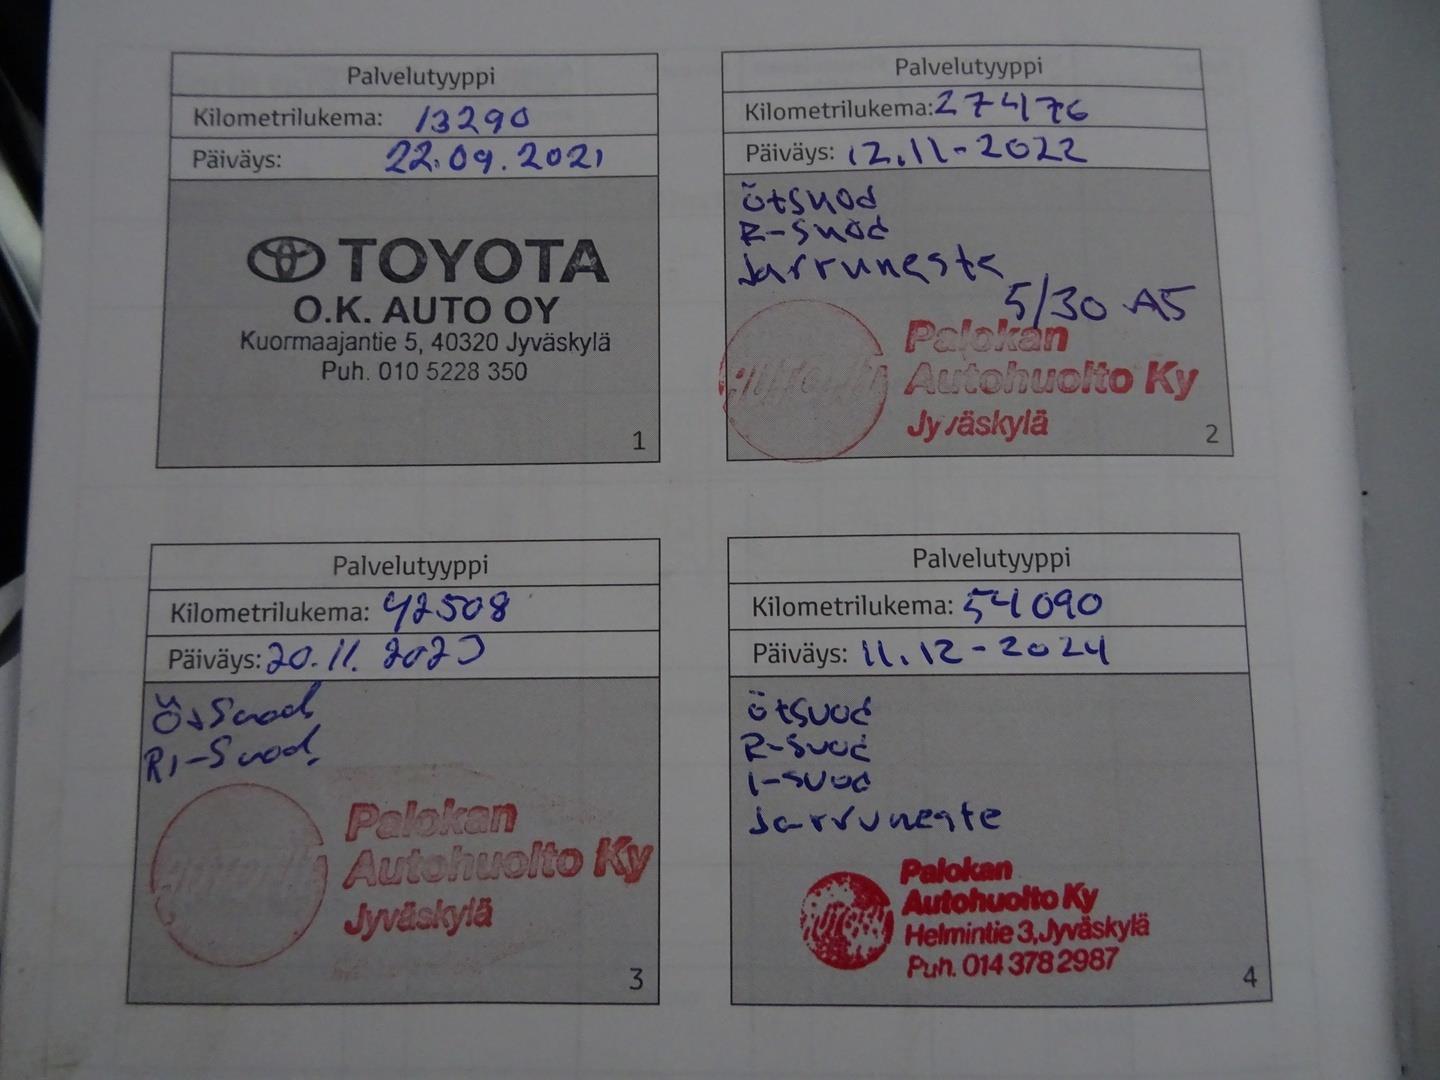 Palvelutyyppi
Kilometrilukema: 13290
Päiväys: 22.09.2021
TOYOTA
O.K. AUTO OY
Kuormaajantie 5, 40320 Jyväskylä
Puh. 010 5228 350
1
Palvelutyyppi
Kilometrilukema: 27476
Päiväys: 12.11-2022
Ötsuod
R-suod
Jarruneste
5/30 A5
Palokan
Autohuolto Ky
Jyväskylä
2
Palvelutyyppi
Kilometrilukema: 42508
Päiväys: 20.11.2023
ÖtSuod
RI-Suod
Palokan
Autohuolto Ky
Jyväskylä
3
Palvelutyyppi
Kilometrilukema: 54090
Päiväys: 11.12-2024
Ötsuod
R-suod
I-suod
Jarruneste
Palokan
Autohuolto Ky
Helmintie 3, Jyväskylä
Puh. 014 378 2987
4